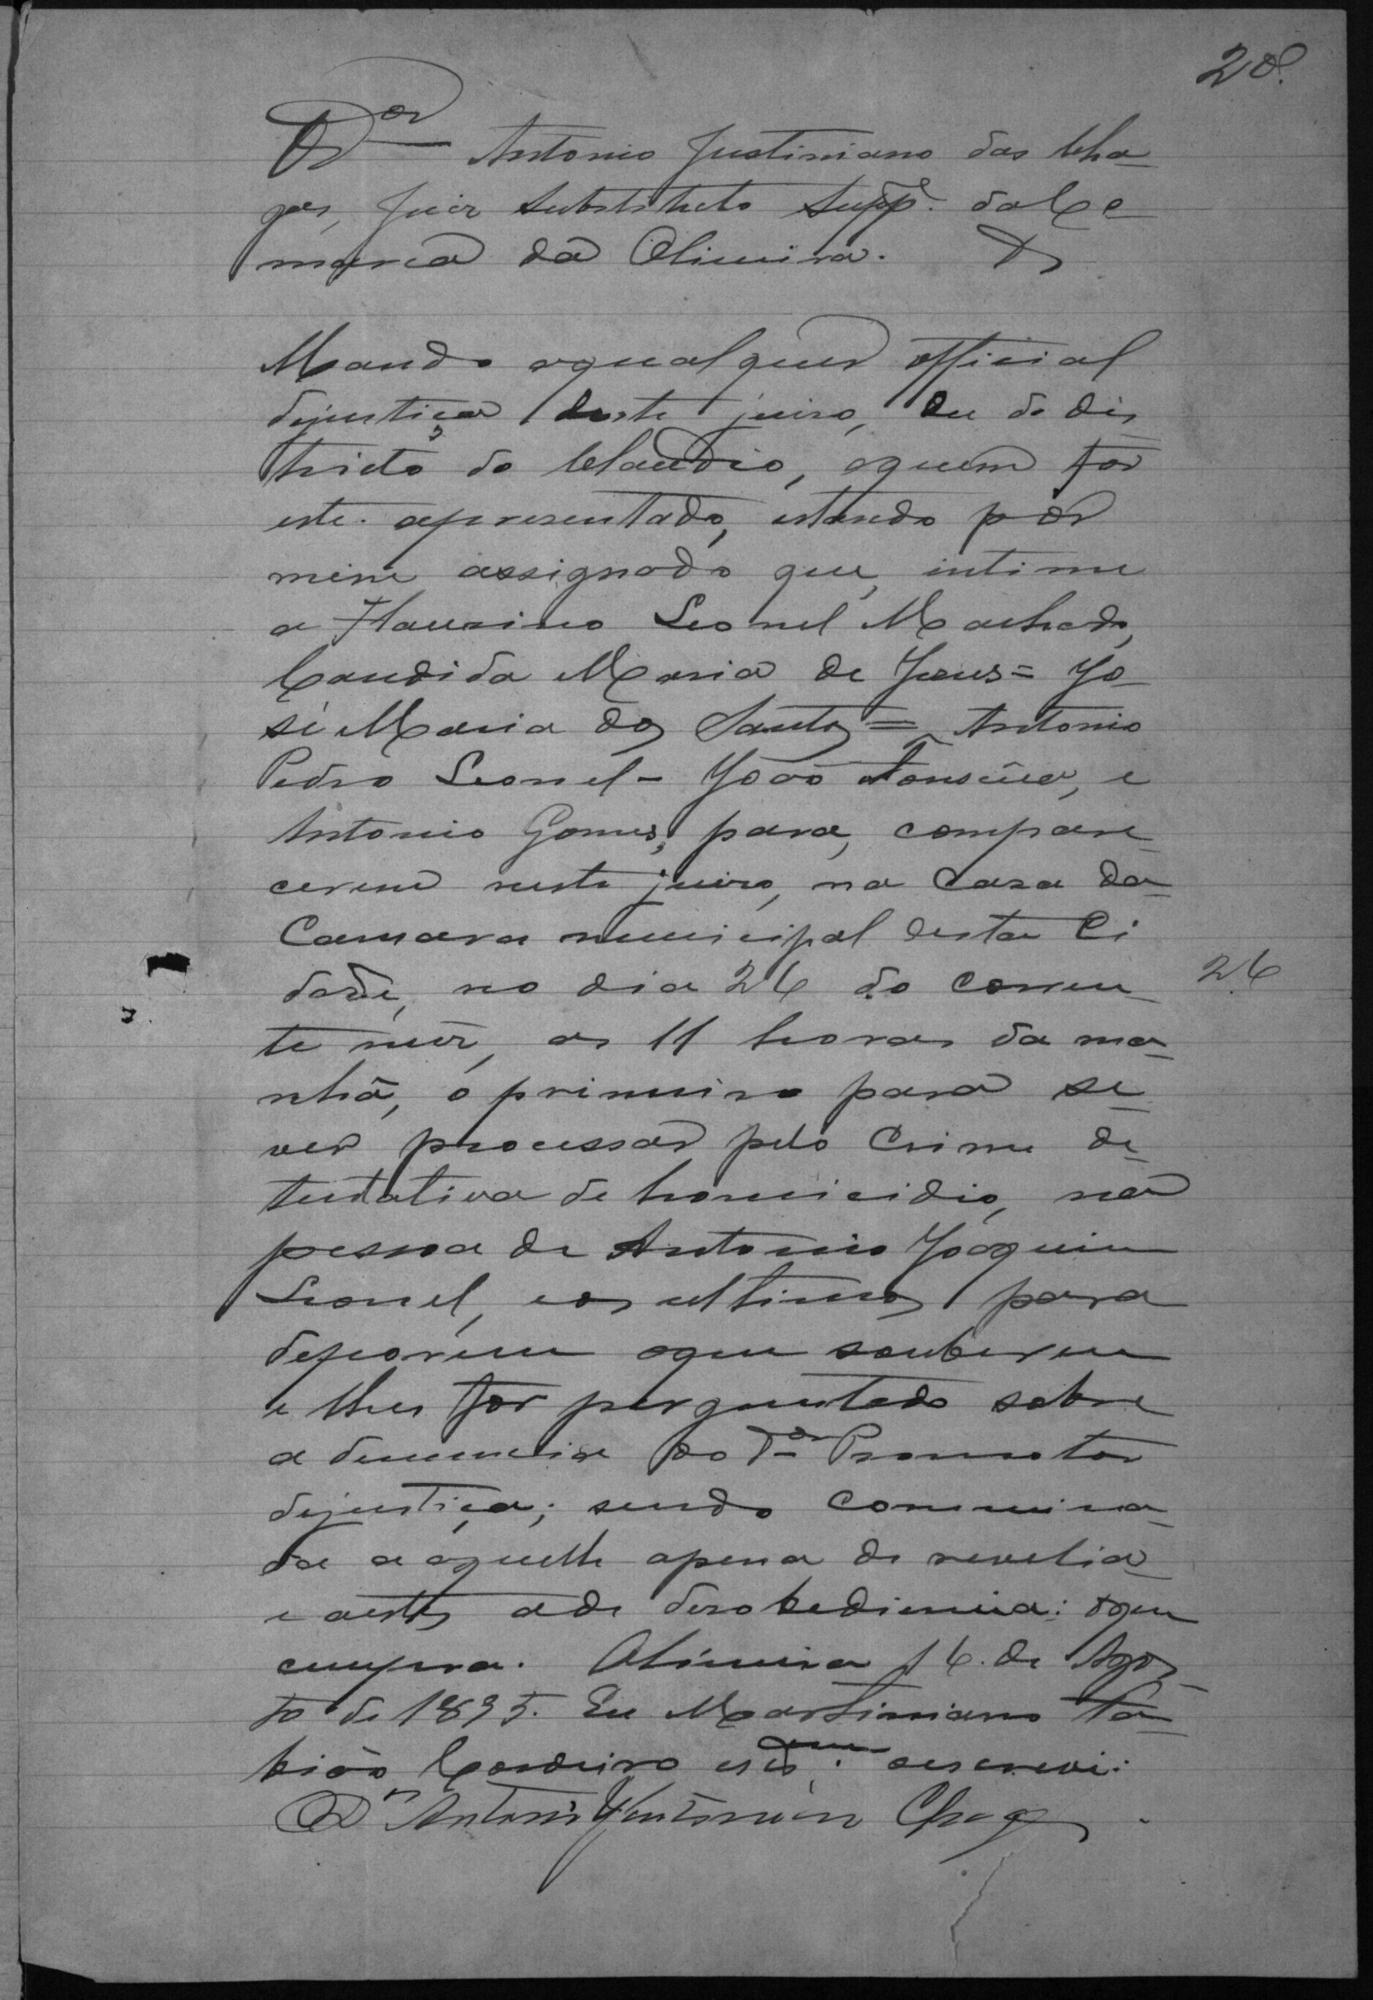 28.
O Dor Antonio Justiniano das Cha-
gas, Juiz Substituto Suppe. da Co-
marca da Oliveira. &
Mando aqualquer official
dejustiça deste juizo, ou do dis
tricto do Claudio, aquem for
este apresentado, estando por
mim assignado que, intime
a Flauzino Leonel Machado,
Candida Maria de Jesus = Jo-
sé Maria dos Santos = Antonio
Pedro Leonel - João Fonseca, e
Antonio Gomes, para, compare-
cerem neste juizo, na Casa da
Camara municipal desta Ci
dade, no dia 26 do corren-
26
te mez, as 11 horas da ma-
nhã, o primeiro para se
ver processar pelo Crime de
tentativa de homicidio, na
pessoa de Antonio Joaquim
Leonel, e os ultimos para
deporem oque souberem
e lhes for perguntado sobre
a denuncia do Dor Promotor
dejustiça; sendo commina-
da a aquelle apena de revelia
e aestes ade desobediencia: oque
cumpra. Oliveira 16 de Agos-
to de 1895. Eu Martiniano
Cordeiro escrevi.
Dr Antonio Justiniano Chagas